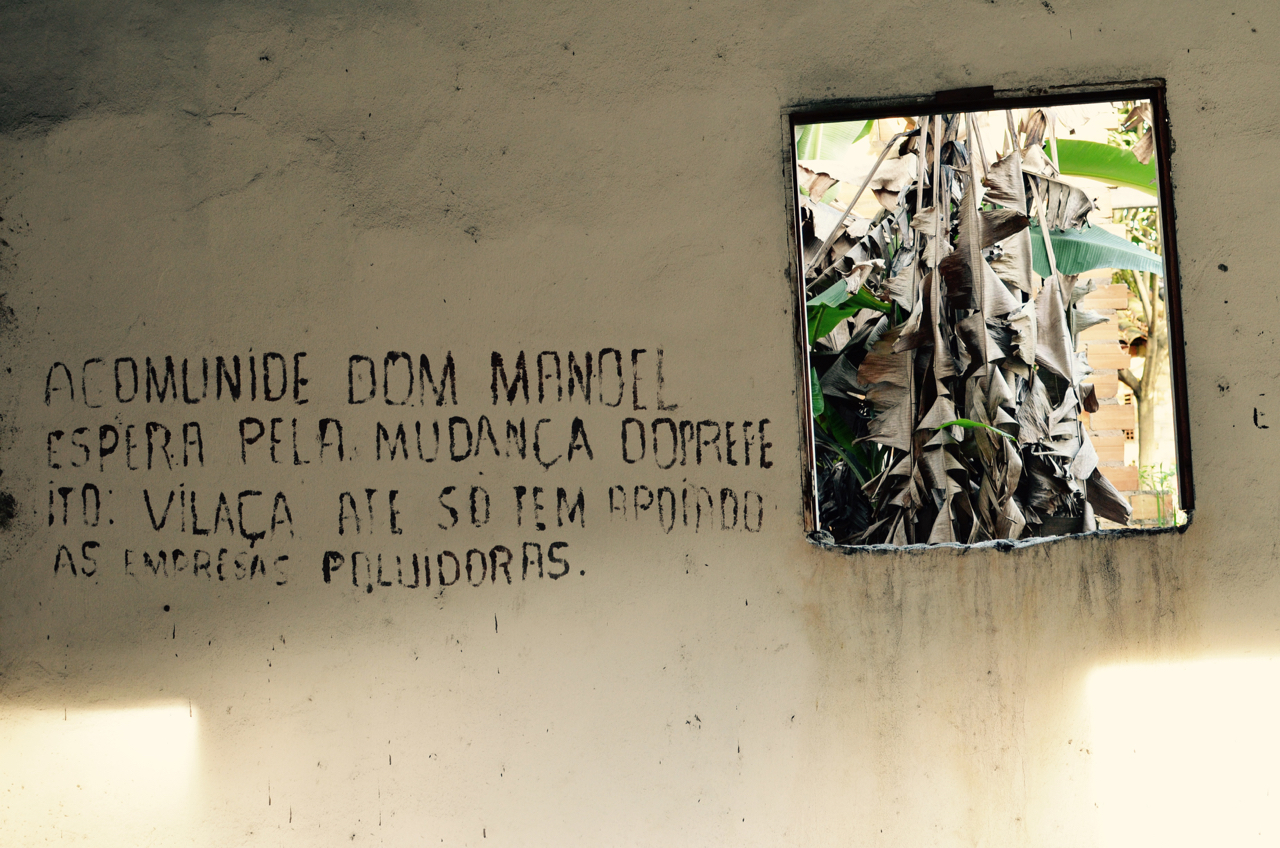 ACOMUNIDE DOM MANOEL
ESPERA PELA MUDANÇA DOPREFE
ITO: VILAÇA ATE SÓ TEM APOIADO
AS EMPRESAS POLUIDORAS.
E